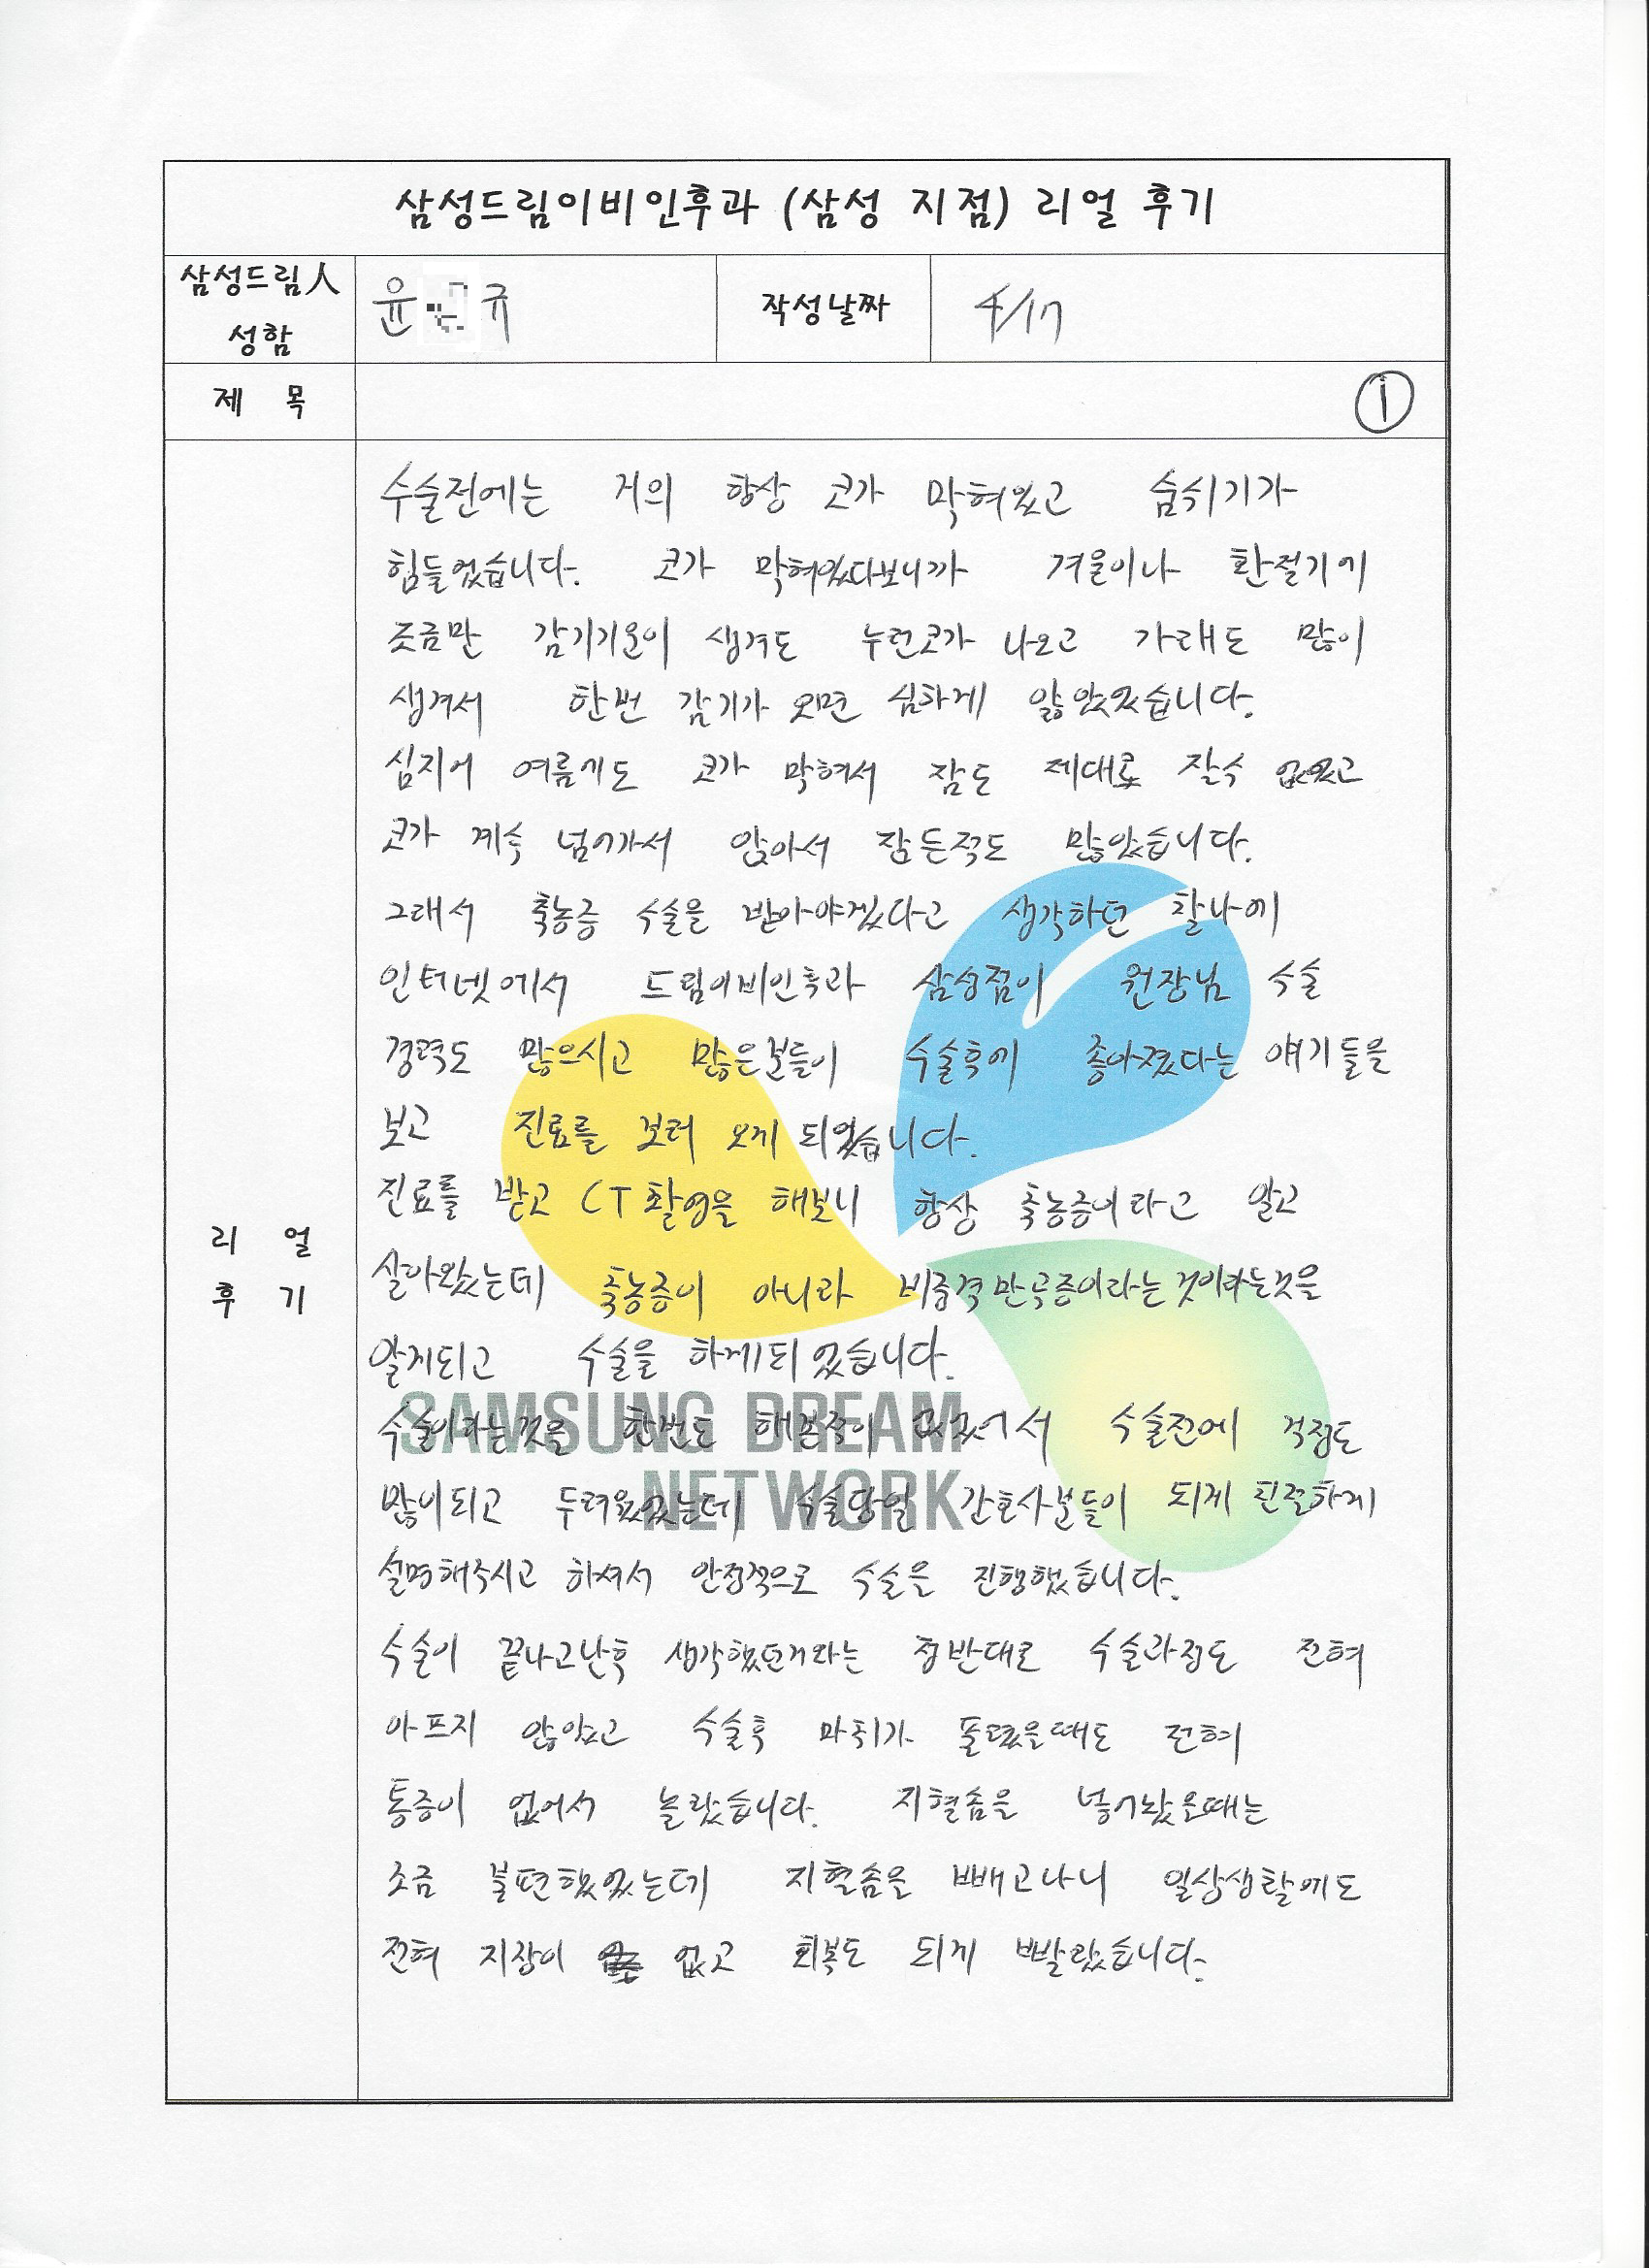 삼성드림이비인후과 (삼성 지점) 리얼 후기
삼성드림人
성함
윤 규
작성날짜
4/17
제 목
①
수술전에는 거의 항상 코가 막혀있고 숨쉬기가
힘들었습니다. 코가 막혀있다보니까 겨울이나 환절기에
조금만 감기기운이 생겨도 누런코가 나오고 가래도 많이
생겨서 한번 감기가 오면 심하게 앓았었습니다.
심지어 여름에도 코가 막혀서 잠도 제대로 잘수 없었고
코가 계속 넘어가서 앉아서 잠든적도 많았습니다.
그래서 축농증 수술을 받아야겠다고 생각하던 찰나에
인터넷에서 드림이비인후과 삼성점이 원장님 수술
경력도 많으시고 많은분들이 수술후에 좋아졌다는 얘기들을
보고 진료를 보러 오게 되었습니다.
진료를 받고 CT촬영을 해보니 항상 축농증이라고 알고
살아왔는데 축농증이 아니라 비중격만곡증이라는것이라는것을
알게되고 수술을 하게되었습니다.
수술이라는것을 한번도 해본적이 없었어서 수술전에 걱정도
많이되고 두려웠었는데 수술당일 간호사분들이 되게 친절하게
설명해주시고 하셔서 안정적으로 수술을 진행했습니다.
수술이 끝나고난후 생각했던거와는 정반대로 수술과정도 전혀
아프지 않았고 수술후 마취가 풀렸을때도 전혀
통증이 없어서 놀랐습니다. 지혈솜을 넣어놨을때는
조금 불편했었는데 지혈솜을 빼고나니 일상생활에도
전혀 지장이 없고 회복도 되게 빨랐습니다.
리 얼
후 기
SAMSUNG DREAM
NETWORK